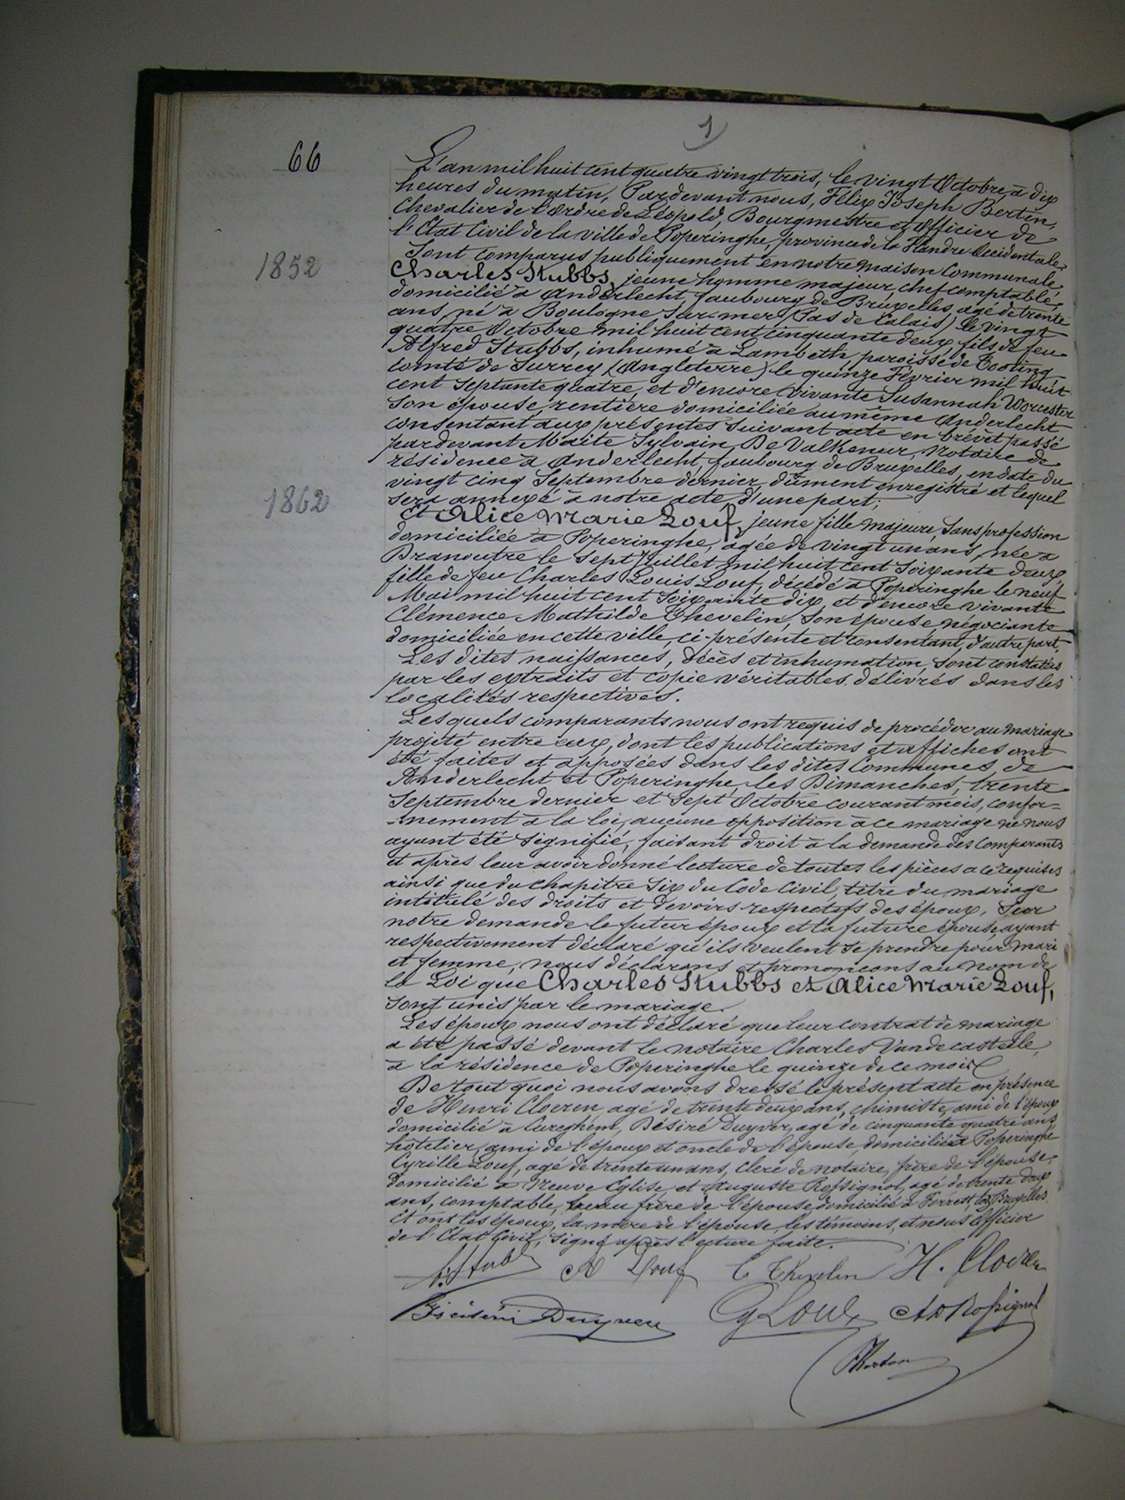 1
66
L'an mil huit cent quatre vingt trois, le vingt Octobre, à dix
heures du matin, Pardevant nous, Félix Joseph Bertin,
Chevalier de l'Ordre de Léopold, Bourgmestre et Officier de
l'Etat Civil de la ville de Poperinghe, province de la Flandre Occidentale,
Sont comparus publiquement en notre maison Communale,
1852
Charles Stubbs, jeune homme majeur, chef comptable,
domicilié à Anderlecht, faubourg de Bruxelles, agé de trente
ans, né à Boulogne sur-mer (Pas de Calais) le vingt
quatre Octobre mil huit cent cinquante deux, fils de feu
Alfred Stubbs, inhumé à Lambeth, paroisse de Tooting
comté de Surrey (Angleterre) le quinze Février mil huit
cent septante quatre, et d'encore vivante Susannah Worcester
son épouse, rentière domiciliée au même Anderlecht
consentant aux présentes suivant acte en brévet passé
pardevant Maitre Sylvain De Valkeneer Notaire de
résidence à Anderlecht, faubourg de Bruxelles, en date du
vingt cinq Septembre dernier, dûment enregistré et lequel
sera annexé à notre acte d'une part;
1862
Et Alice Marie Louf, jeune fille majeure, sans profession
domiciliée à Poperinghe, agée de vingt un ans, née à
Dranoutre le sept Juillet mil huit cent soixante deux
fille de feu Charles Louis Louf, décédé à Poperinghe le neuf
Mai mil huit cent soixante dix, et d'encore vivante
Clémence Mathilde Thevelin, son épouse négociante
domiciliée en cette ville ci-présente et consentant, d'autre part,
Les dites naissances, décès et inhumation, sont constatés
par les extraits et copie véritables délivrés dans les
localités respectives.
Lesquels comparants nous ont requis de procéder au mariage
projeté entre eux, dont les publications et affiches ont
été faites et apposées dans les dites Communes de
Anderlecht et Poperinghe, les Dimanches, trente
Septembre dernier et sept Octobre courant mois, confor-
-mement à la loi, aucune opposition à ce mariage ne nous
ayant été signifié, faisant droit à la demande des comparants
et après leur avoir donné lecture de toutes les pièces à ce requises
ainsi que du chapitre six du Code Civil, titre du mariage
intitulé des droits et devoirs respectifs des époux. Sur
notre demande le futur époux et la future épouse ayant
respectivement déclaré qu'ils veulent se prendre pour mari
et femme, nous déclarons et prononçons au nom de
la Loi que Charles Stubbs et Alice Marie Louf,
sont unis par le mariage.
Les époux nous ont déclaré que leur contrat de mariage
a été passé devant le notaire Charles Vandecasteele,
à la résidence de Poperinghe le quinze de ce mois.
De tout quoi nous avons dressé le présent acte en présence
de Henri Cloeren agé de trente deux ans, chimiste, ami de l'époux
domicilié à Cureghem, Désiré Duyver, agé de cinquante quatre ans
hôtelier, ami de l'époux et oncle de l'épouse, domicilié à Poperinghe
Cyrille Louf, agé de trente un ans, clerc de notaire, frère de l'épouse,
domicilié à Neuve Eglise et Auguste Rossignol, agé de trente deux
ans, comptable, beau frère de l'épouse domicilié à Forrest, lez Bruxelles
Et ont les époux, la mère de l'épouse, les témoins, et nous Officier
de l'Etat Civil, signé après lecture faite.
A Louf C Thevelin H. Cloeren
Duyver C Louf A Rossignol